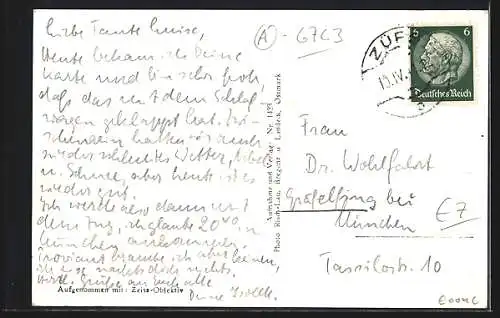 Liebe Tante Luise,
Heute bekam ich Deine
Karte und bin sehr froh,
daß das mit dem Schlaf-
wagen geklappt hat. In-
zwischen hatten wir auch
wieder schlechtes Wetter, Nebel
u. Schnee, aber heute ist es
wieder gut.
Ich werde also dann mit
dem Zug, ich glaube 20⁴⁰ in
München ankommen.
Proviant brauche ich aber keinen,
ich esse nachts doch nichts.
Herzl. Grüße an euch alle
Deine
Aufgenommen mit: Zeiss-Objektiv
Aufnahme und Verlag: Nr. 1493
Photo Risch-Lau, Bregenz u. Lustenau, Ostmark
A - 67C3
ZÜR
19.IV.
6 6
Deutsches Reich
Frau
Dr. Wohlfahrt
Gräfelfing bei
München
Tassilostr. 10
E7